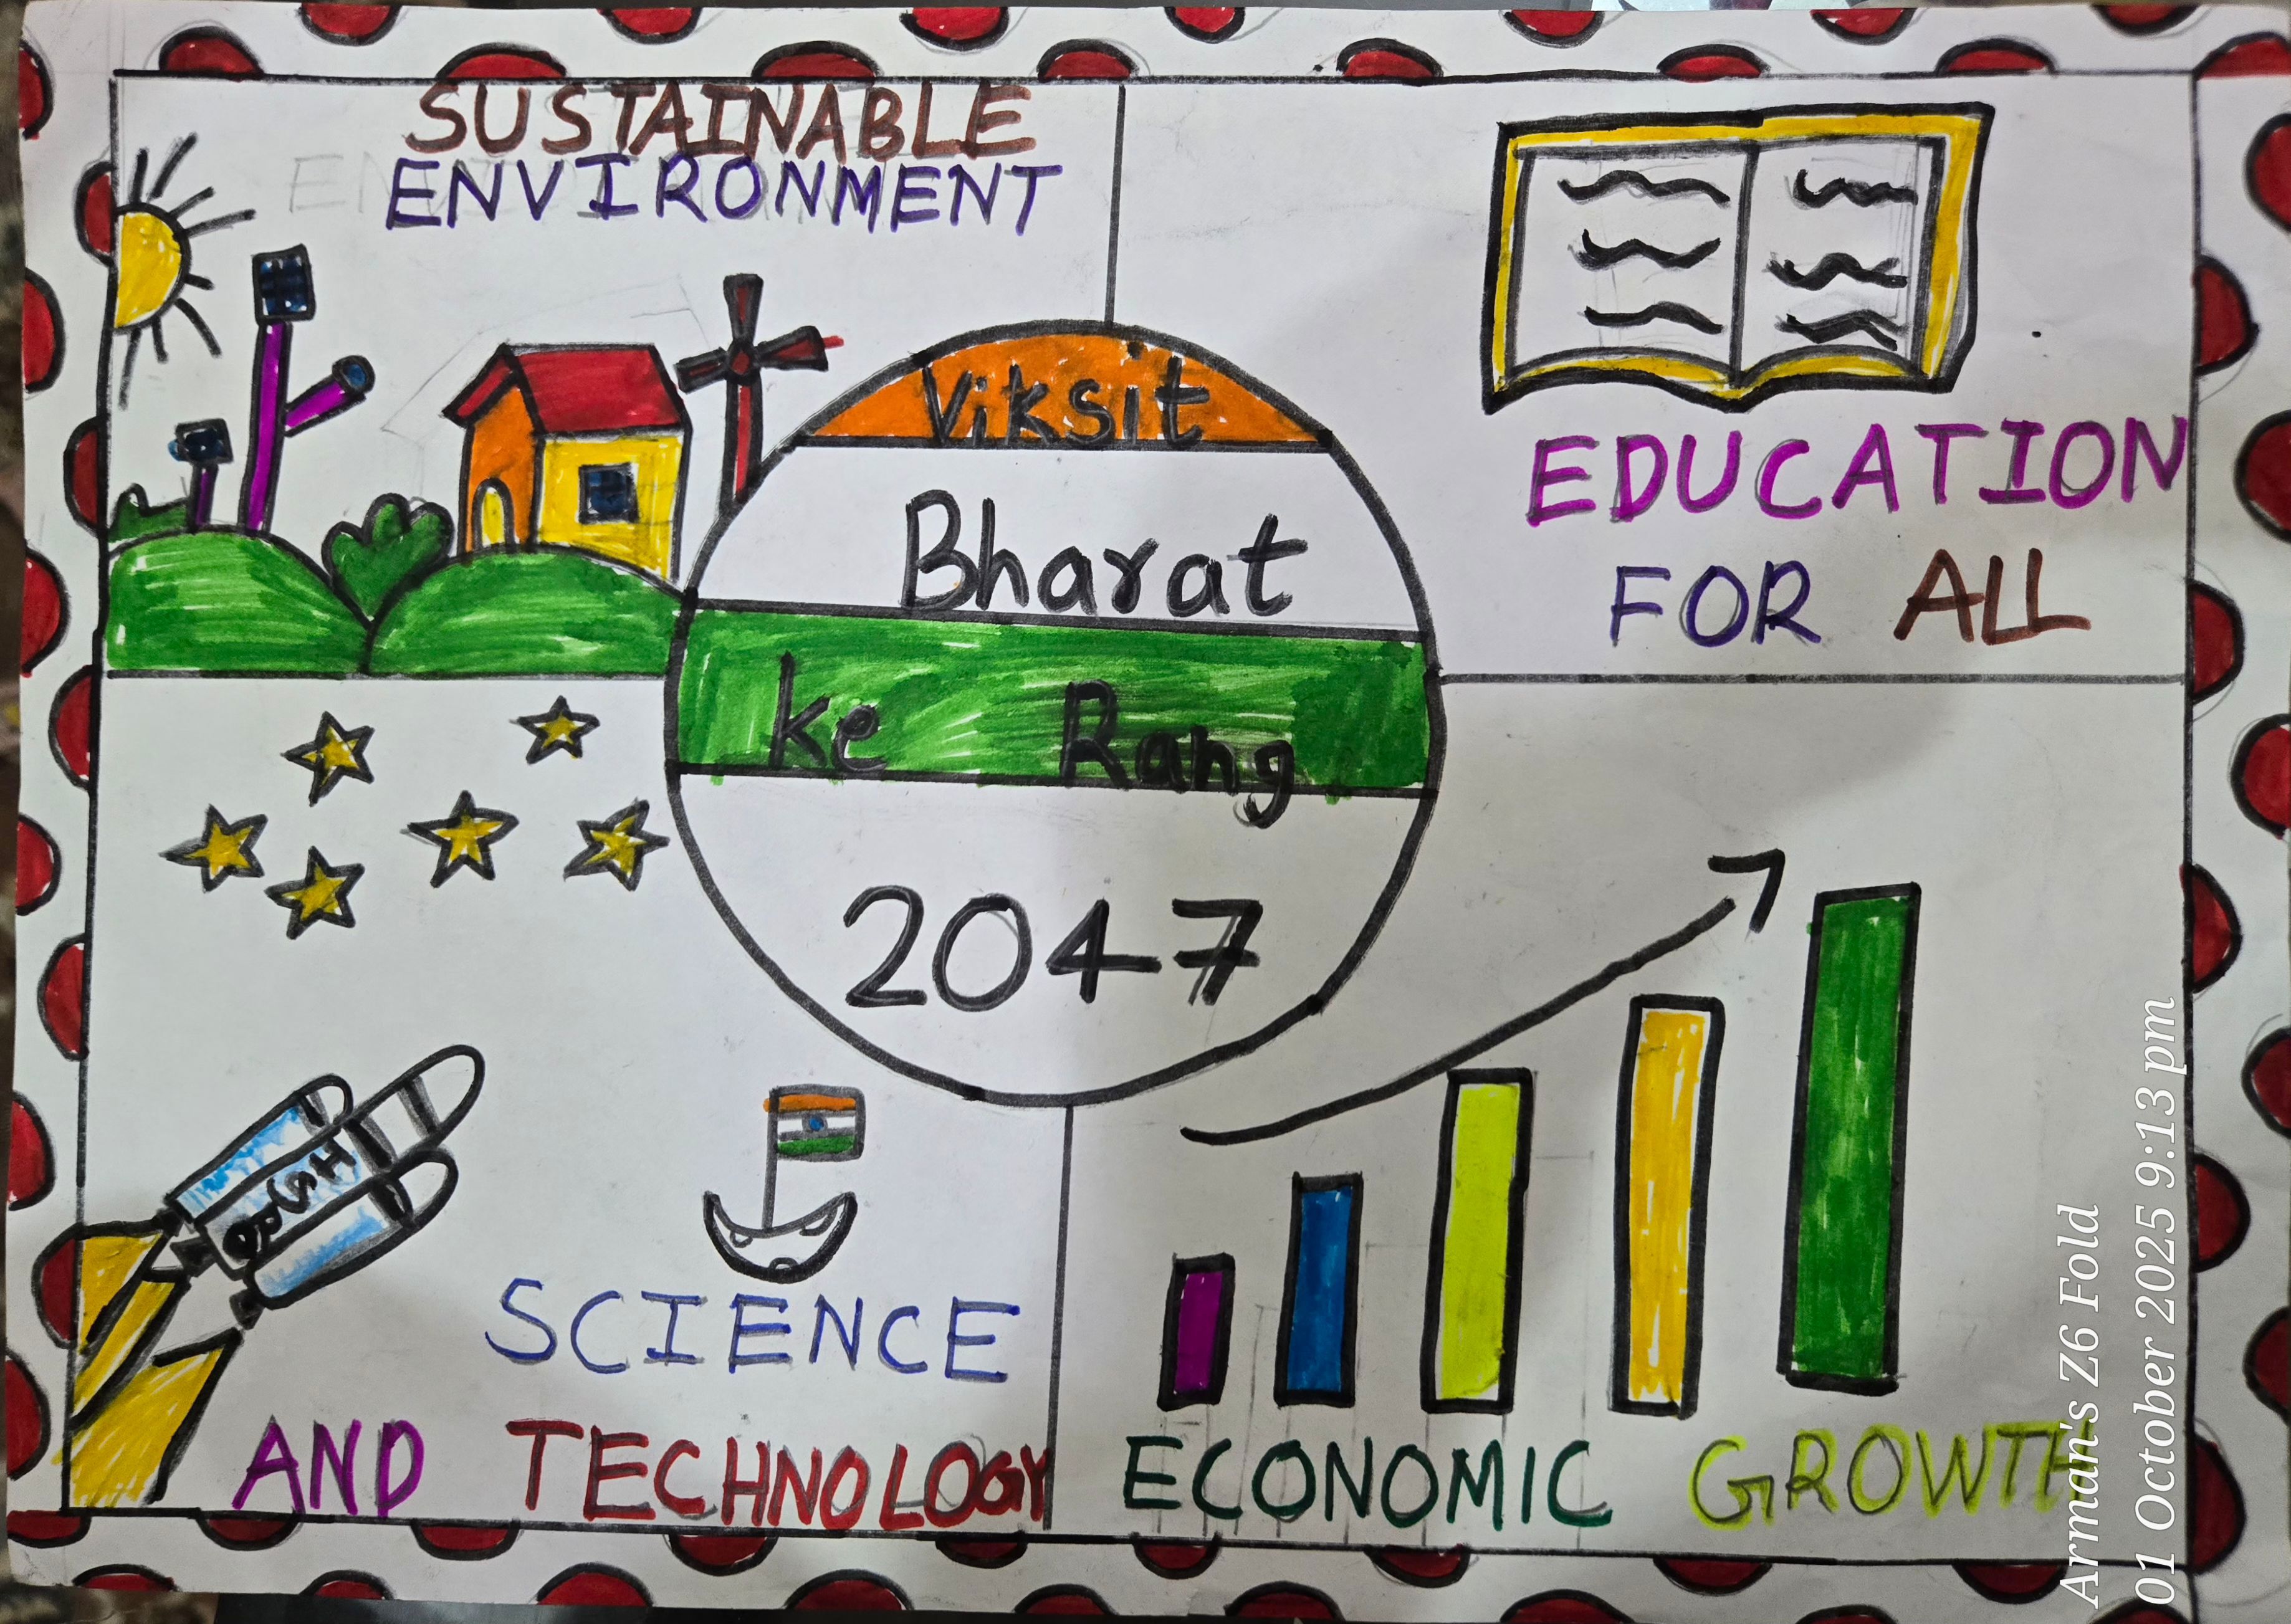 SUSTAINABLE
ENVIRONMENT
EDUCATION
FOR ALL
Viksit
Bharat
ke Rang
2047
SCIENCE
AND TECHNOLOGY
ECONOMIC GROWTH
Arman's Z6 Fold
01 October 2025 9:13 pm